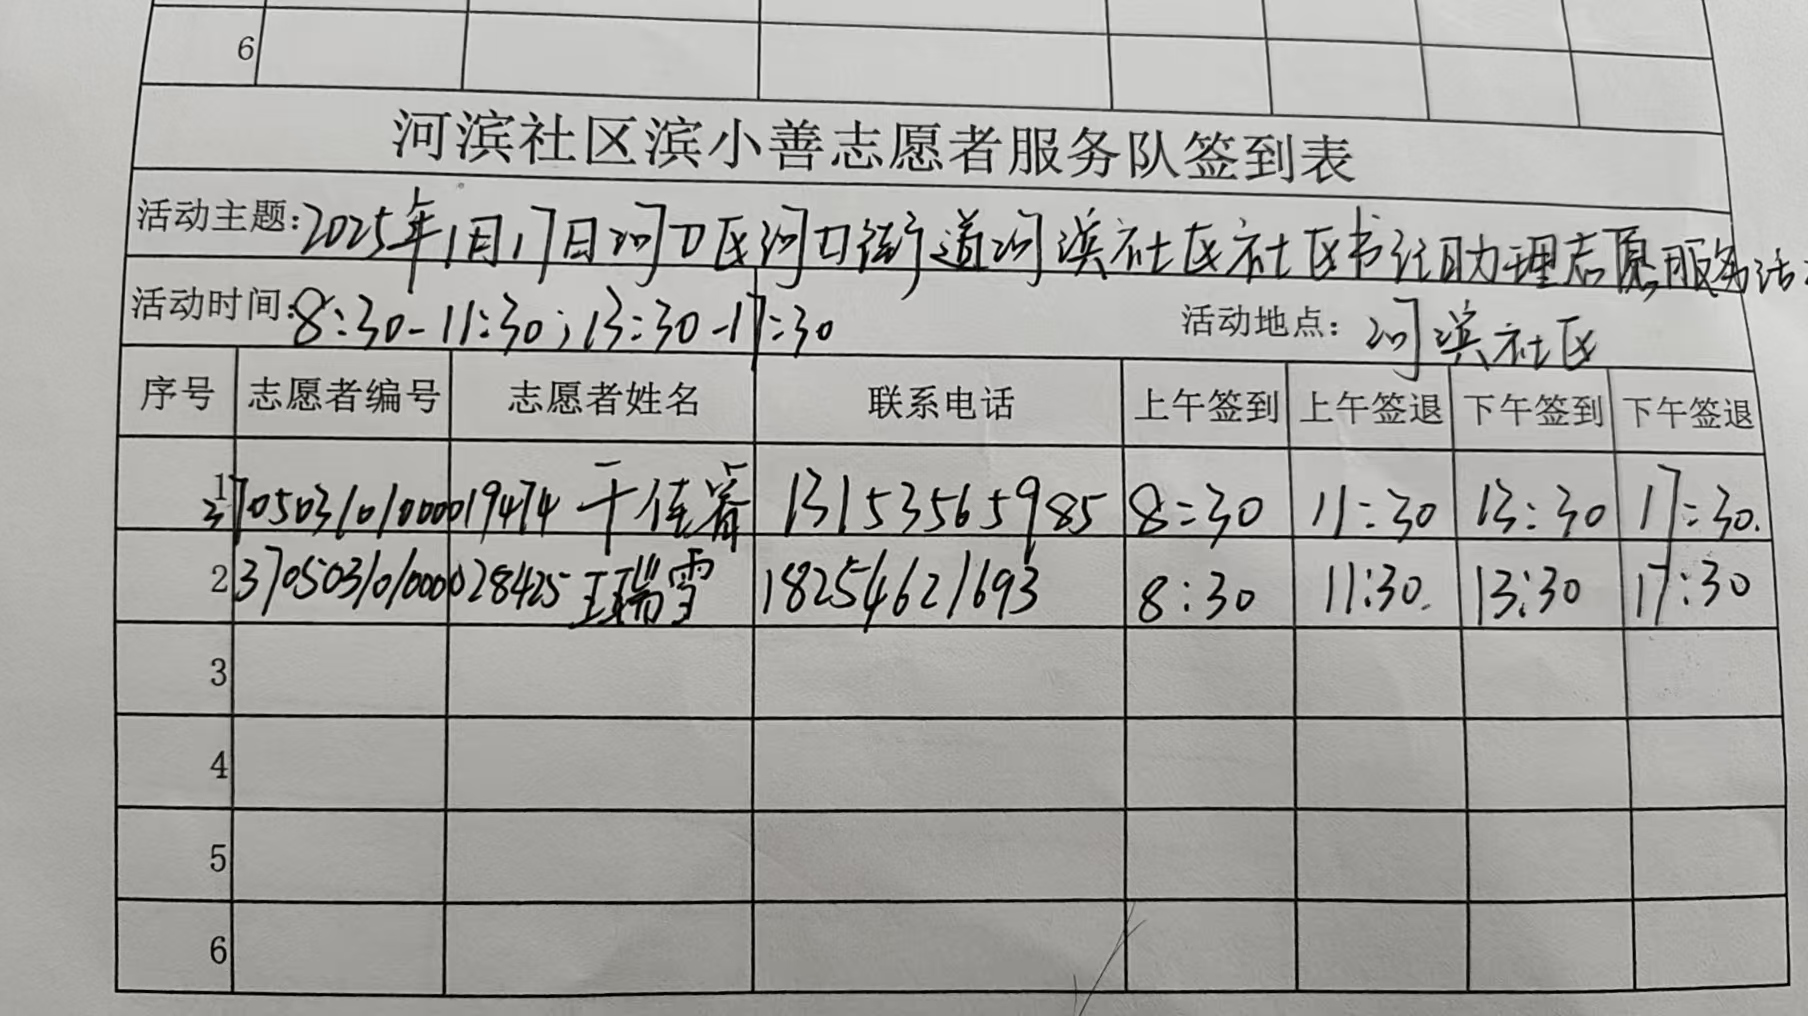 6
河滨社区滨小善志愿者服务队签到表
活动主题:2025年1月17日河口区河口街道河滨社区社区书记助理志愿服务活
活动时间:8:30-11:30;13:30-17:30 活动地点: 河滨社区
序号 志愿者编号 志愿者姓名 联系电话 上午签到 上午签退 下午签到 下午签退
1 3705031010000019474 于佳睿 13153565985 8:30 11:30 13:30 17:30.
2 3705031010000028425 王瑞雪 18254621693 8:30 11:30. 13:30 17:30
3
4
5
6